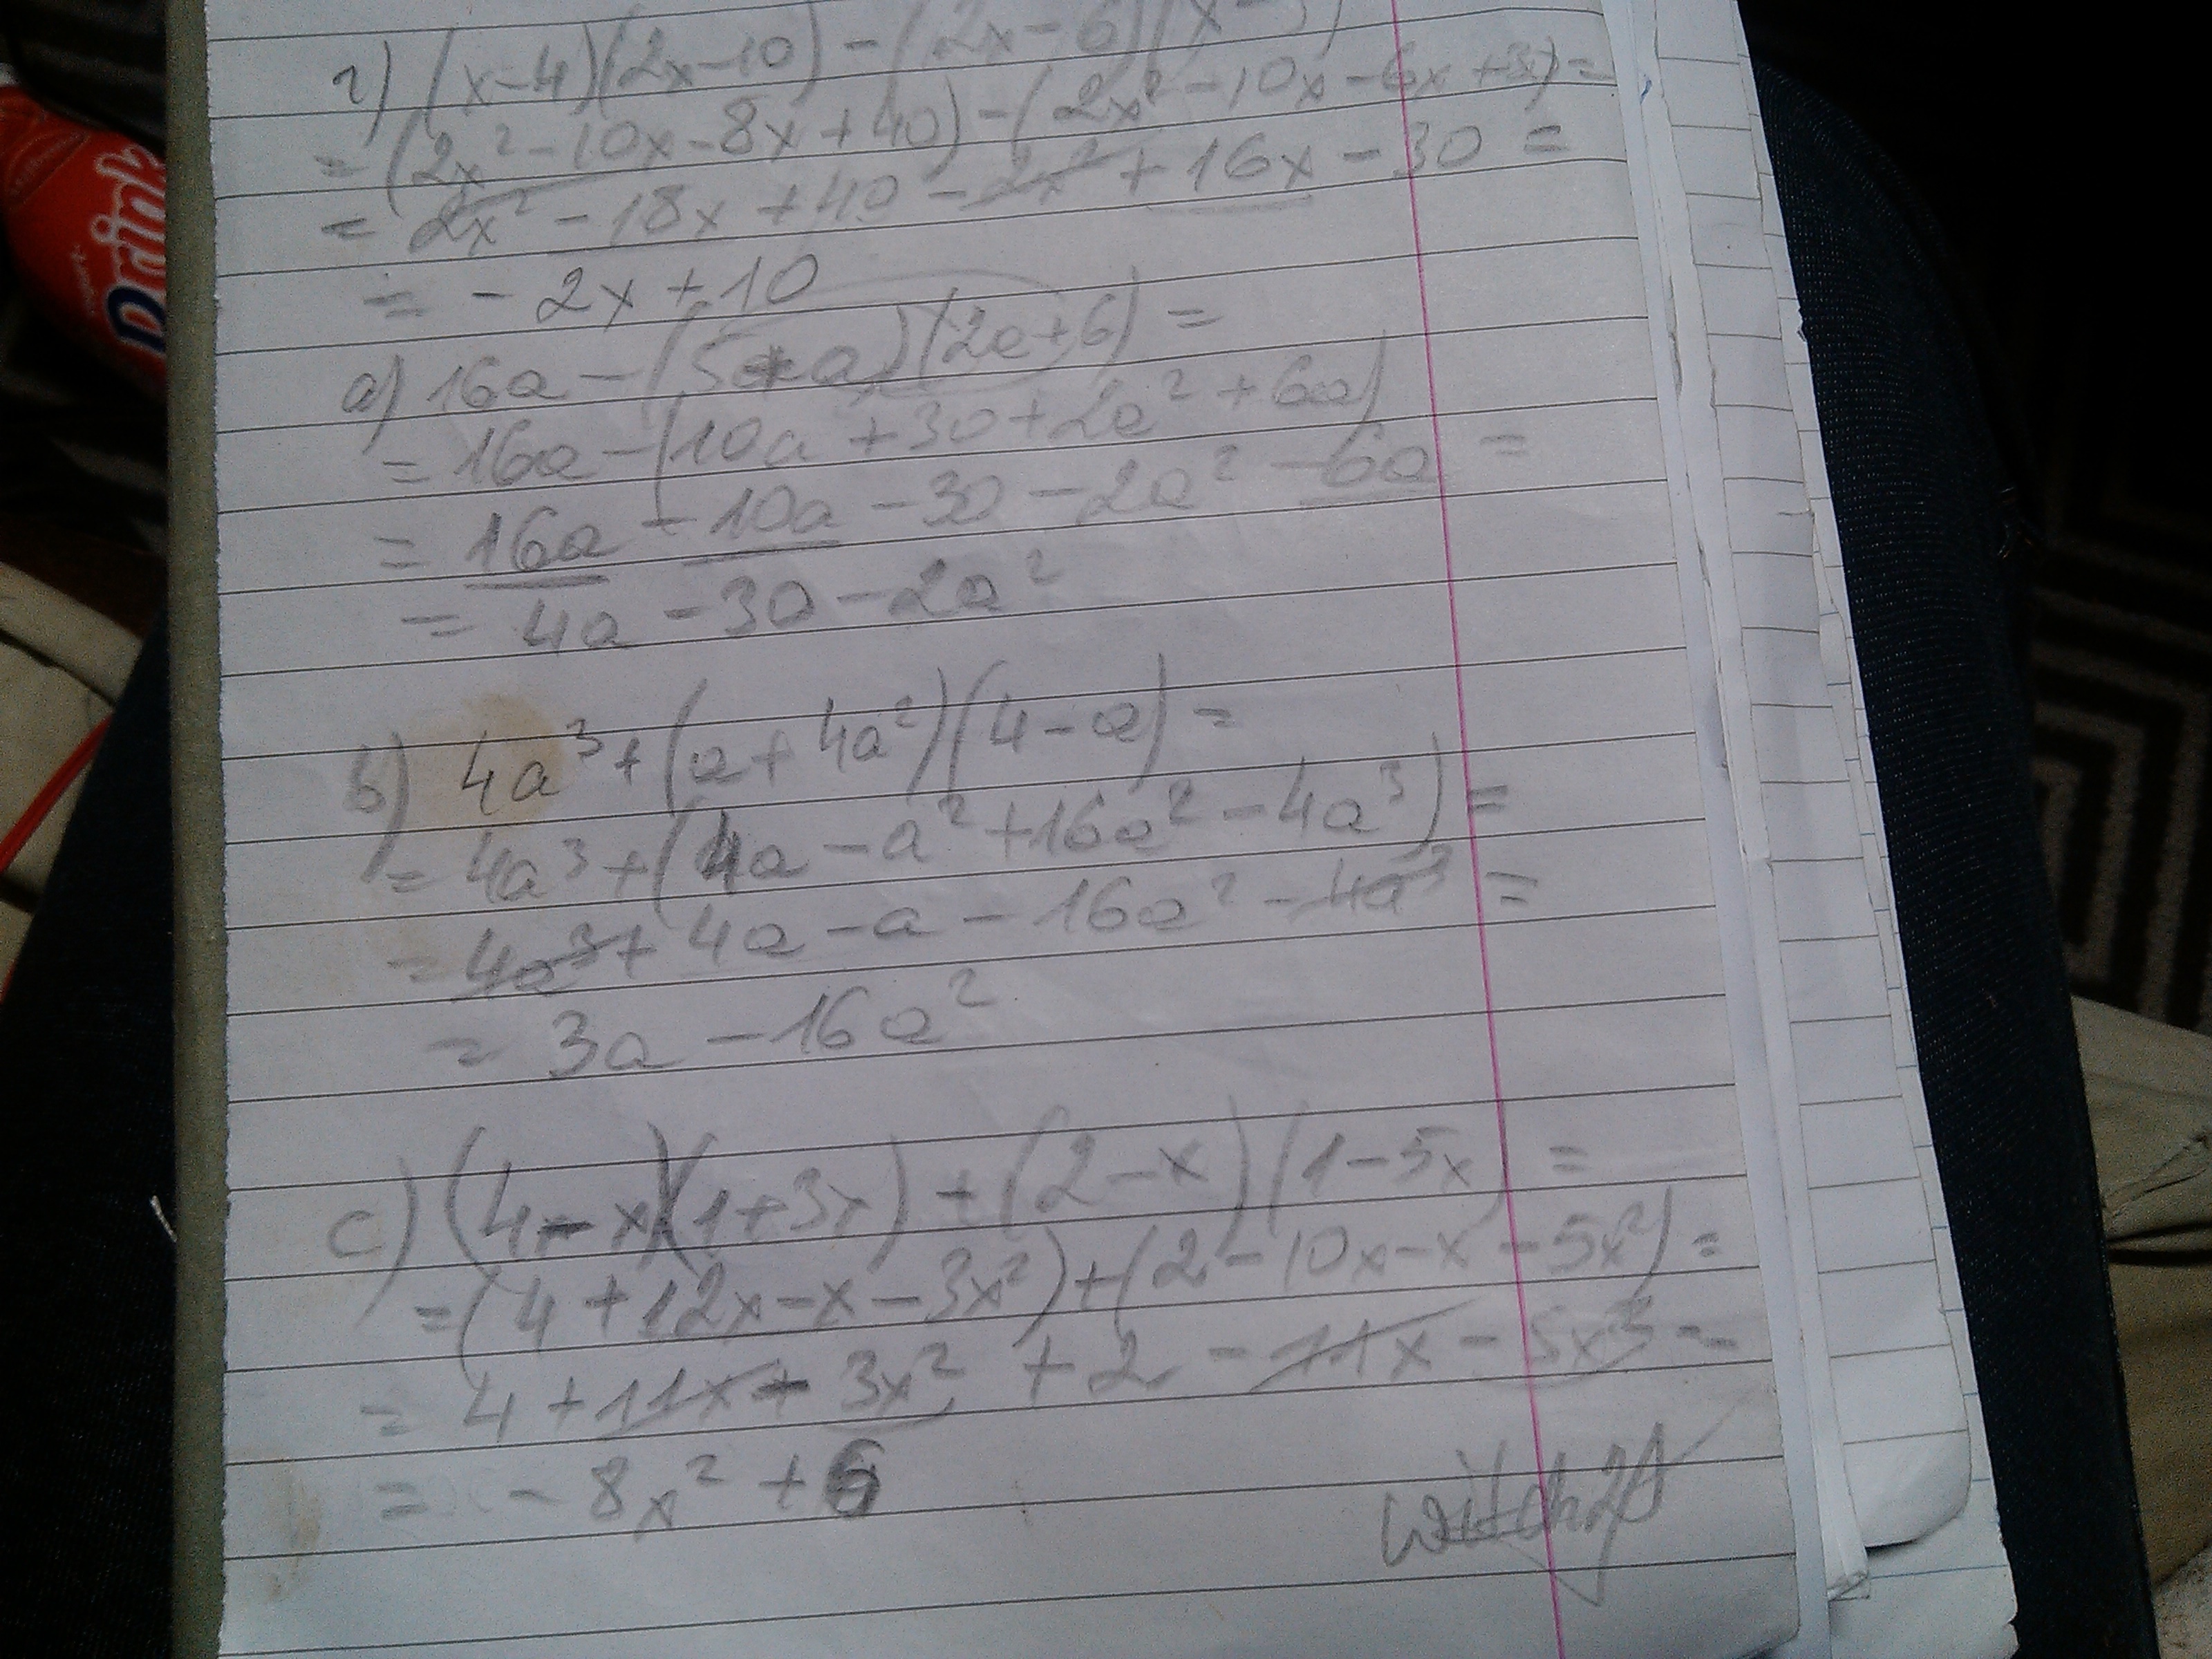 г) (x-4)(2x-10) - (2x-6)(x-5)
= (2x² - 10x - 8x + 40) - (2x² - 10x - 6x + 3) =
= 2x² - 18x + 40 - 2x² + 16x - 30 =
= - 2x + 10
a) 16a - (5+a)(2a+6) =
= 16a - (10a + 30 + 2a² + 6a)
= 16a - 10a - 30 - 2a² - 6a =
= 4a - 30 - 2a²
b) 4a³ + (a + 4a²)(4 - a) =
= 4a³ + (4a - a² + 16a² - 4a³) =
= 4a³ + 4a - a - 16a² - 4a³ =
= 3a - 16a²
c) (4-x)(1+3x) + (2-x)(1-5x) =
= (4 + 12x - x - 3x²) + (2 - 10x - x - 5x²) =
= 4 + 11x - 3x² + 2 - 11x - 5x² =
= - 8x² + 6
witch2A
Drink